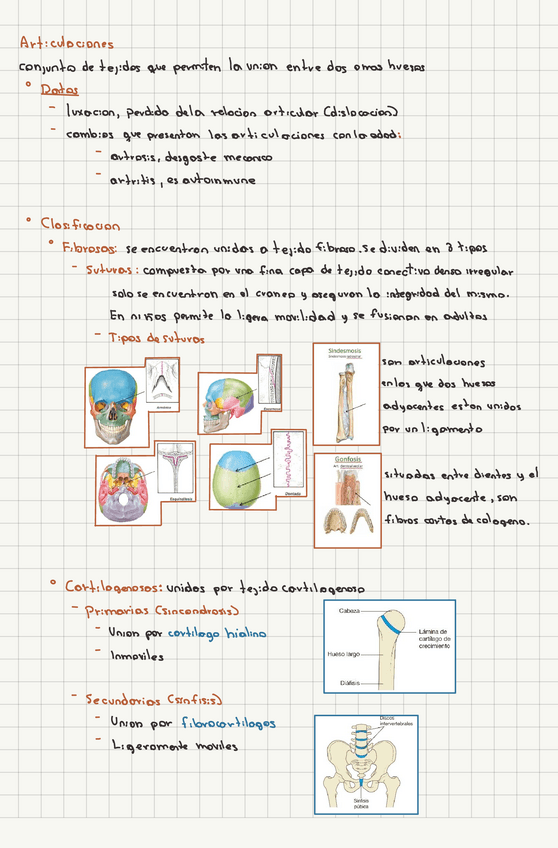 Articulaciones
conjunto de tejidos que permiten la union entre dos omas huesos
° Datos
- luxacion, perdida de la relacion articular (dislocacion)
- cambios que presentan las articulaciones con la edad:
- artrosis, desgaste mecanico
- artritis, es autoinmune
° Clasificacion
° Fibrosas: se encuentran unidas a tejido fibroso. Se dividen en 3 tipos
- Suturas: compuesta por una fina capa de tejido conectivo denso irregular
solo se encuentran en el craneo y aseguran la integridad del mismo.
En niños permite la ligera movilidad y se fusionan en adultos
- Tipos de suturas
Armónica
Escamosa
Esquindilesis
Dentada
Sindesmosis
son articulaciones
en las que dos huesos
adyacentes estan unidos
por un ligamento
Gonfosis
situadas entre dientes y el
hueso adyacente, son
fibras cortas de colageno.
° Cartilaginosas: unidas por tejido cartilaginoso
- Primarias (sincondrosis)
- Union por cartilago hialino
- Inmoviles
Cabeza
Lámina de
cartílago de
crecimiento
Hueso largo
Diáfisis
- Secundarias (sinfisis)
- Union por fibrocartilagos
- Ligeramente moviles
Discos
intervertebrales
Sínfisis
púbica